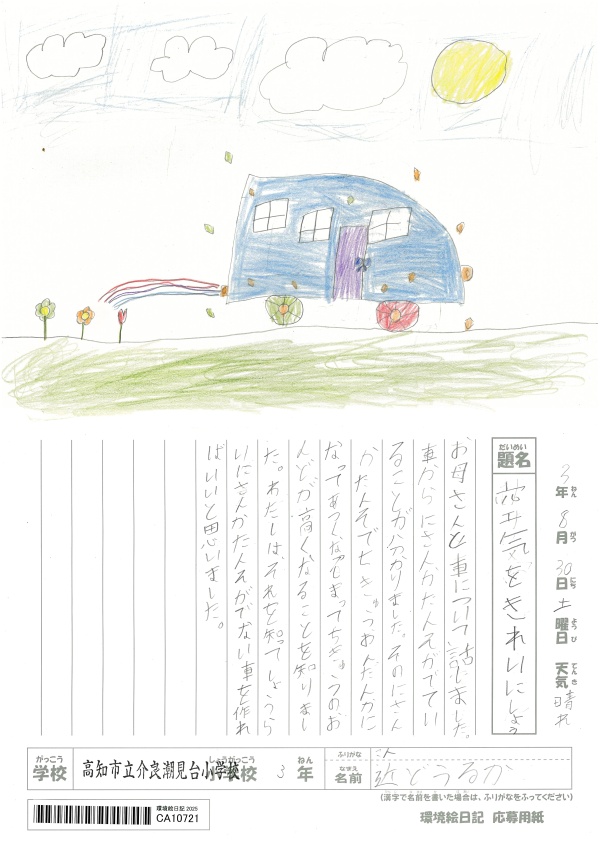 3年ねん 8月がつ 30日にち 土曜日ようび 天気てんき 晴れ
題名だいめい 空気をきれいにしよう
お母さんと車について話しました。
車からにさんかたんそがでてい
ることが分かりました。そのにさん
かたんそでちきゅうおんだんかに
なってあつくなってしまってちきゅうのお
んどが高くなることを知りまし
た。わたしは、それを知ってしょうら
いにさんかたんそがでない車を作れ
ばいいと思いました。
学校がっこう 高知市立介良潮見台小学校 3年ねん
ふりがな
名前なまえ 近どうるか
(漢字で名前を書いた場合は、ふりがなをふってください)
環境絵日記 応募用紙
環境絵日記 2025
CA10721